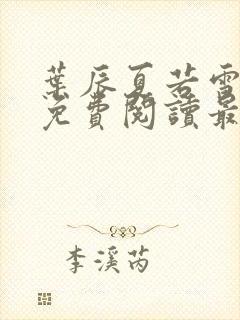 葉辰夏若雪
免費閱讀最
李溪芮